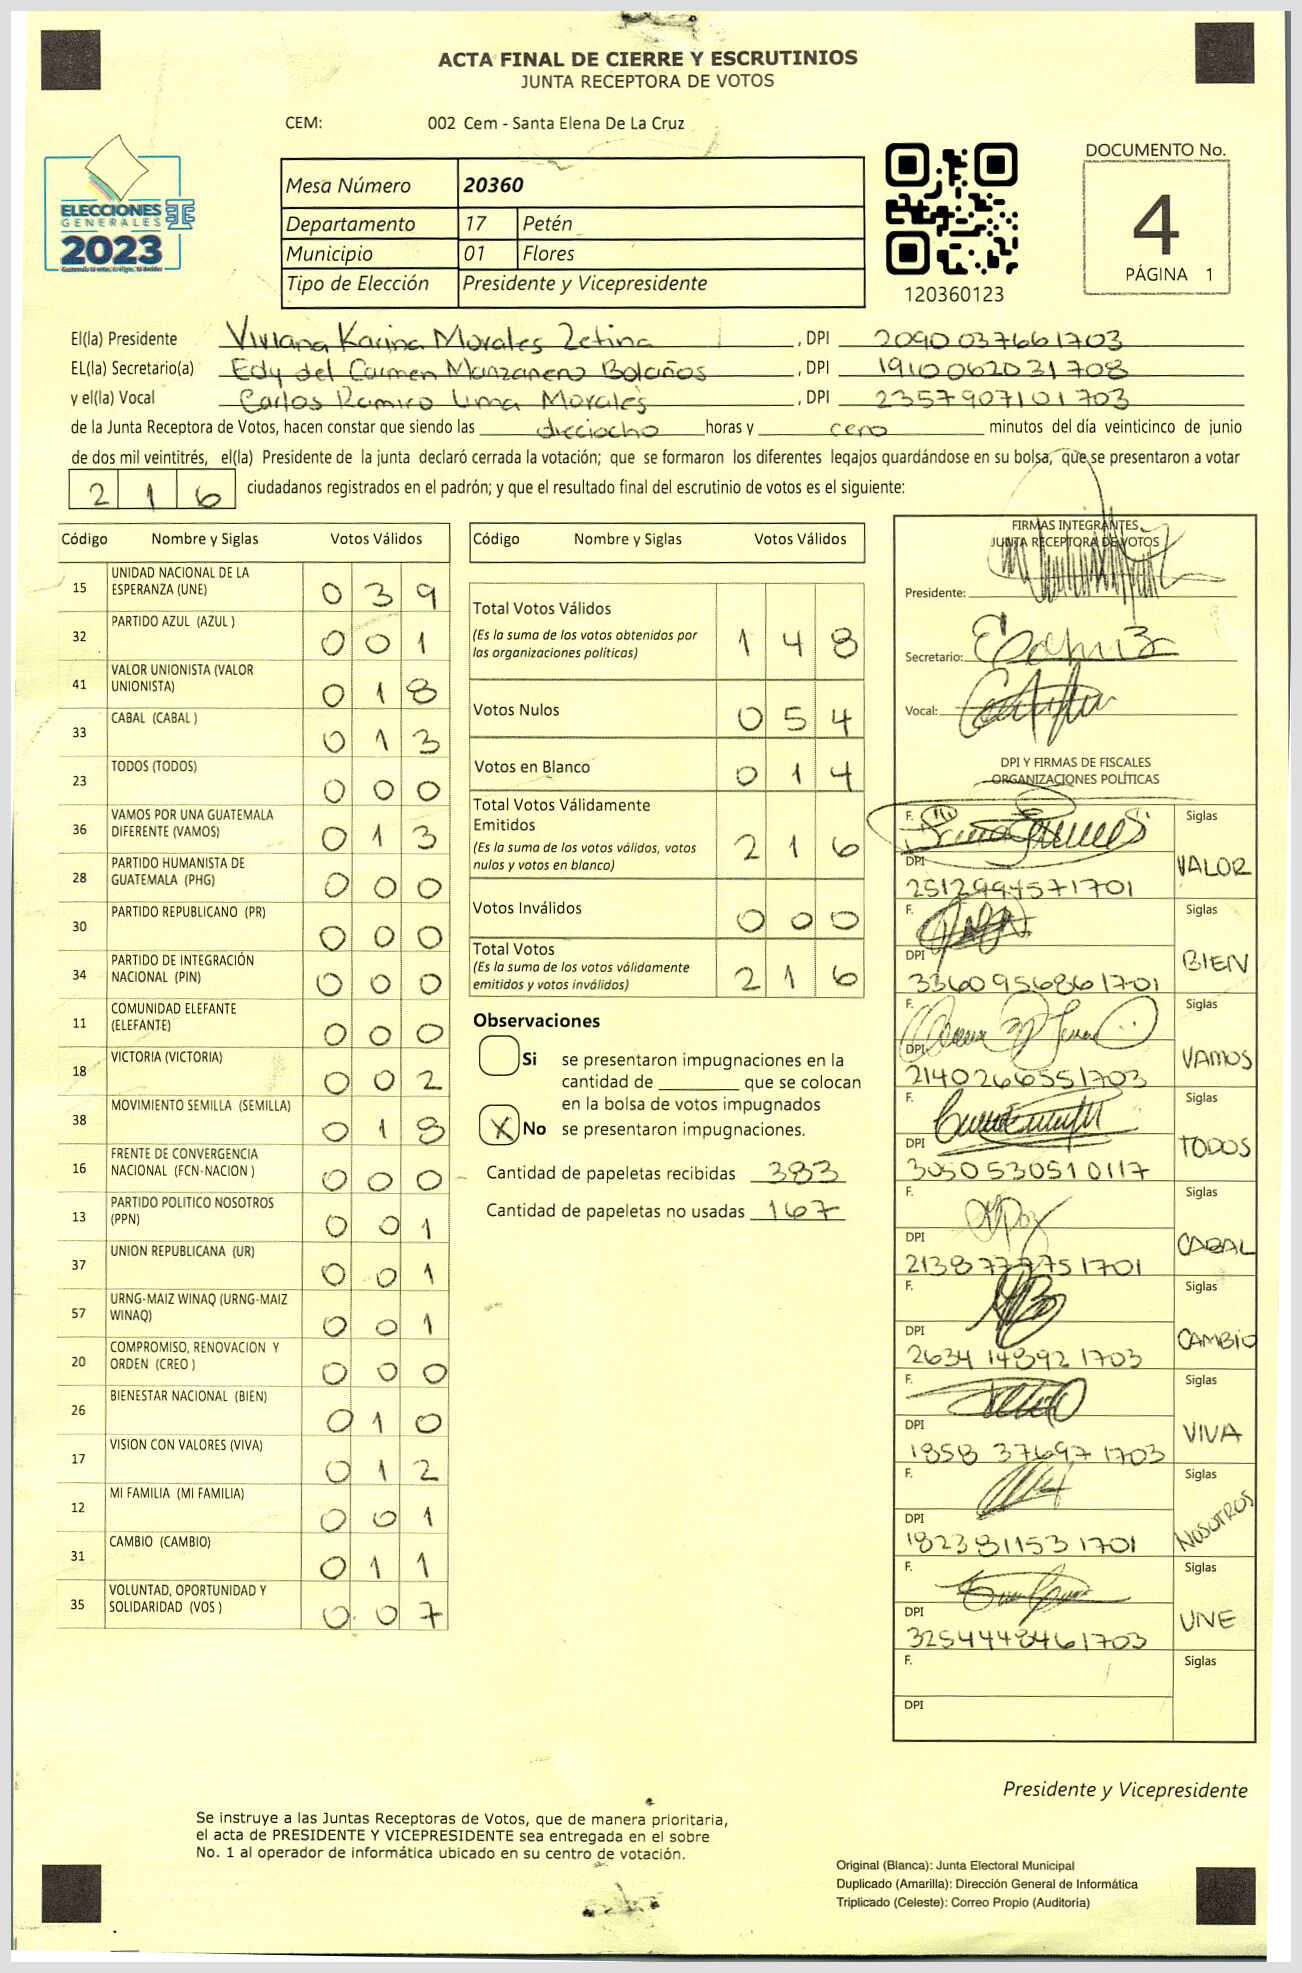 ACTA FINAL DE CIERRE Y ESCRUTINIOS
JUNTA RECEPTORA DE VOTOS
CEM: 002 Cem - Santa Elena De La Cruz
ELECCIONES
GENERALES
2023
Mesa Número 20360
Departamento 17 Petén
Municipio 01 Flores
Tipo de Elección Presidente y Vicepresidente
120360123
DOCUMENTO No.
4
PÁGINA 1
El(la) Presidente Viviana Karina Morales Zetina, DPI 2090037661703
EL(la) Secretario(a) Edy del Carmen Manzanero Bolaños, DPI 1910062031708
y el(la) Vocal Carlos Ramiro Lima Morales, DPI 2357907101703
de la Junta Receptora de Votos, hacen constar que siendo las dieciocho horas y cero minutos del día veinticinco de junio
de dos mil veintitrés, el(la) Presidente de la junta declaró cerrada la votación; que se formaron los diferentes legajos guardándose en su bolsa, que se presentaron a votar
216 ciudadanos registrados en el padrón; y que el resultado final del escrutinio de votos es el siguiente:
Código Nombre y Siglas Votos Válidos
15 UNIDAD NACIONAL DE LA ESPERANZA (UNE) 039
32 PARTIDO AZUL (AZUL ) 001
41 VALOR UNIONISTA (VALOR UNIONISTA) 018
33 CABAL (CABAL ) 013
23 TODOS (TODOS) 000
36 VAMOS POR UNA GUATEMALA DIFERENTE (VAMOS) 013
28 PARTIDO HUMANISTA DE GUATEMALA (PHG) 000
30 PARTIDO REPUBLICANO (PR) 000
34 PARTIDO DE INTEGRACIÓN NACIONAL (PIN) 000
11 COMUNIDAD ELEFANTE (ELEFANTE) 000
18 VICTORIA (VICTORIA) 002
38 MOVIMIENTO SEMILLA (SEMILLA) 018
16 FRENTE DE CONVERGENCIA NACIONAL (FCN-NACION ) 000
13 PARTIDO POLITICO NOSOTROS (PPN) 001
37 UNION REPUBLICANA (UR) 001
57 URNG-MAIZ WINAQ (URNG-MAIZ WINAQ) 001
20 COMPROMISO, RENOVACION Y ORDEN (CREO ) 000
26 BIENESTAR NACIONAL (BIEN) 010
17 VISION CON VALORES (VIVA) 012
12 MI FAMILIA (MI FAMILIA) 001
31 CAMBIO (CAMBIO) 011
35 VOLUNTAD, OPORTUNIDAD Y SOLIDARIDAD (VOS ) 007
Código Nombre y Siglas Votos Válidos
Total Votos Válidos 148
(Es la suma de los votos obtenidos por
las organizaciones políticas)
Votos Nulos 054
Votos en Blanco 014
Total Votos Válidamente
Emitidos 216
(Es la suma de los votos válidos, votos
nulos y votos en blanco)
Votos Inválidos 000
Total Votos 216
(Es la suma de los votos válidamente
emitidos y votos inválidos)
Observaciones
Si se presentaron impugnaciones en la
cantidad de ________ que se colocan
en la bolsa de votos impugnados
X No se presentaron impugnaciones.
Cantidad de papeletas recibidas 383
Cantidad de papeletas no usadas 167
FIRMAS INTEGRANTES
JUNTA RECEPTORA DE VOTOS
Presidente:
Secretario:
Vocal:
DPI Y FIRMAS DE FISCALES
ORGANIZACIONES POLÍTICAS
F. Siglas
DPI VALOR
2512994571701
F. Siglas
DPI BIEN
3360956861701
F. Siglas
DPI VAMOS
2140266551703
F. Siglas
DPI TODOS
3050530510117
F. Siglas
DPI CABAL
2138777751701
F. Siglas
DPI CAMBIO
2634148921703
F. Siglas
DPI VIVA
1858376971703
F. Siglas
DPI NOSOTROS
1823811531701
F. Siglas
DPI UNE
3254448461703
F. Siglas
DPI
Presidente y Vicepresidente
Se instruye a las Juntas Receptoras de Votos, que de manera prioritaria,
el acta de PRESIDENTE Y VICEPRESIDENTE sea entregada en el sobre
No. 1 al operador de informática ubicado en su centro de votación.
Original (Blanca): Junta Electoral Municipal
Duplicado (Amarilla): Dirección General de Informática
Triplicado (Celeste): Correo Propio (Auditoría)